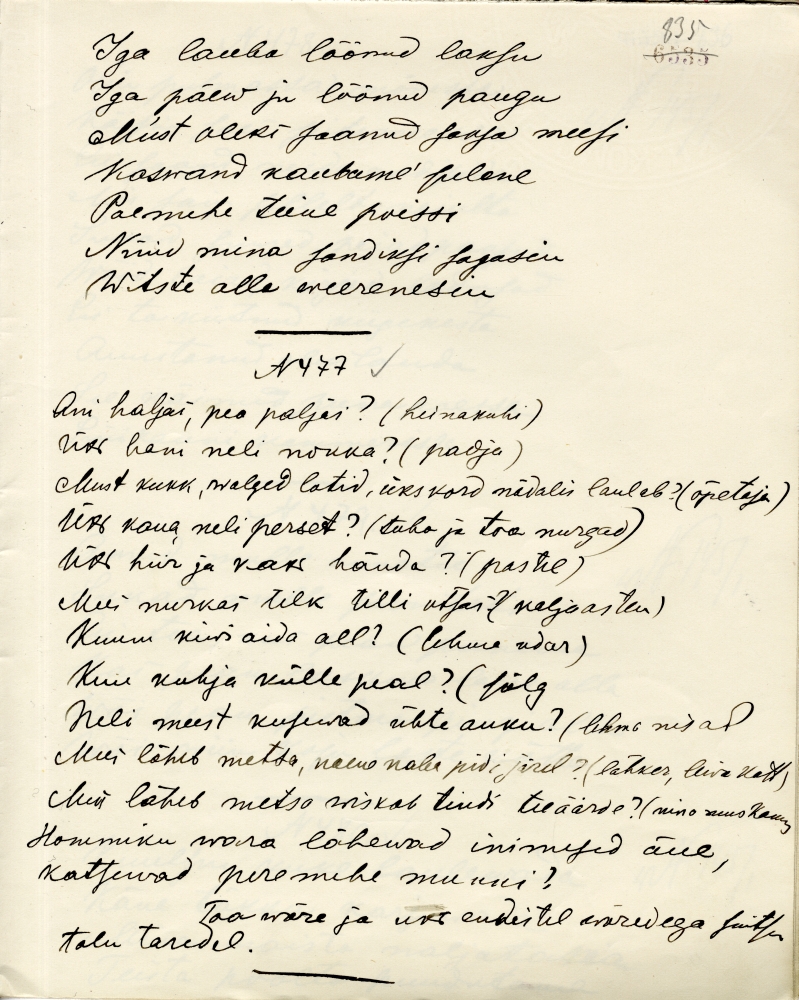 835
6585
Iga lauba löönud laksu
Iga päew ju löönud paugu
Must oleks saanud saksa meesi
Kaswand kaubame' sulane
Poemehe teine poissi
Nüüd mina sandiksi sagasin
Witste alla weerenesin
N 477 ✓
Ani haljas, pea paljas? (heinakuhi)
Üks hani neli nokka? (padja)
Must kukk, walged latid, ükskord nädalis laulab? (õpetaja)
Üks kana, neli perset? (tuba ja toa nurgad)
Üks hiir ja kaks hända? (pastel)
Mees nurkas tilk tilli otsas? (kaljaastea)
Kuum kiwi aida all? (lehma udar)
Kuu kubja külle peal? (sõlg
Neli meest kusewad ühte auku? (lehma nisad
Mees läheb metsa, naene naba pidi järel? (lähker, leiwakott)
Mees läheb metsa wiskab tindi teeäärde? (nina nuuskamy
Hommiku wara lähewad inimesed õue,
katsewad peremehe munni?
Toa wäre ja uks endistel wäredega suitsu
talu taredel.